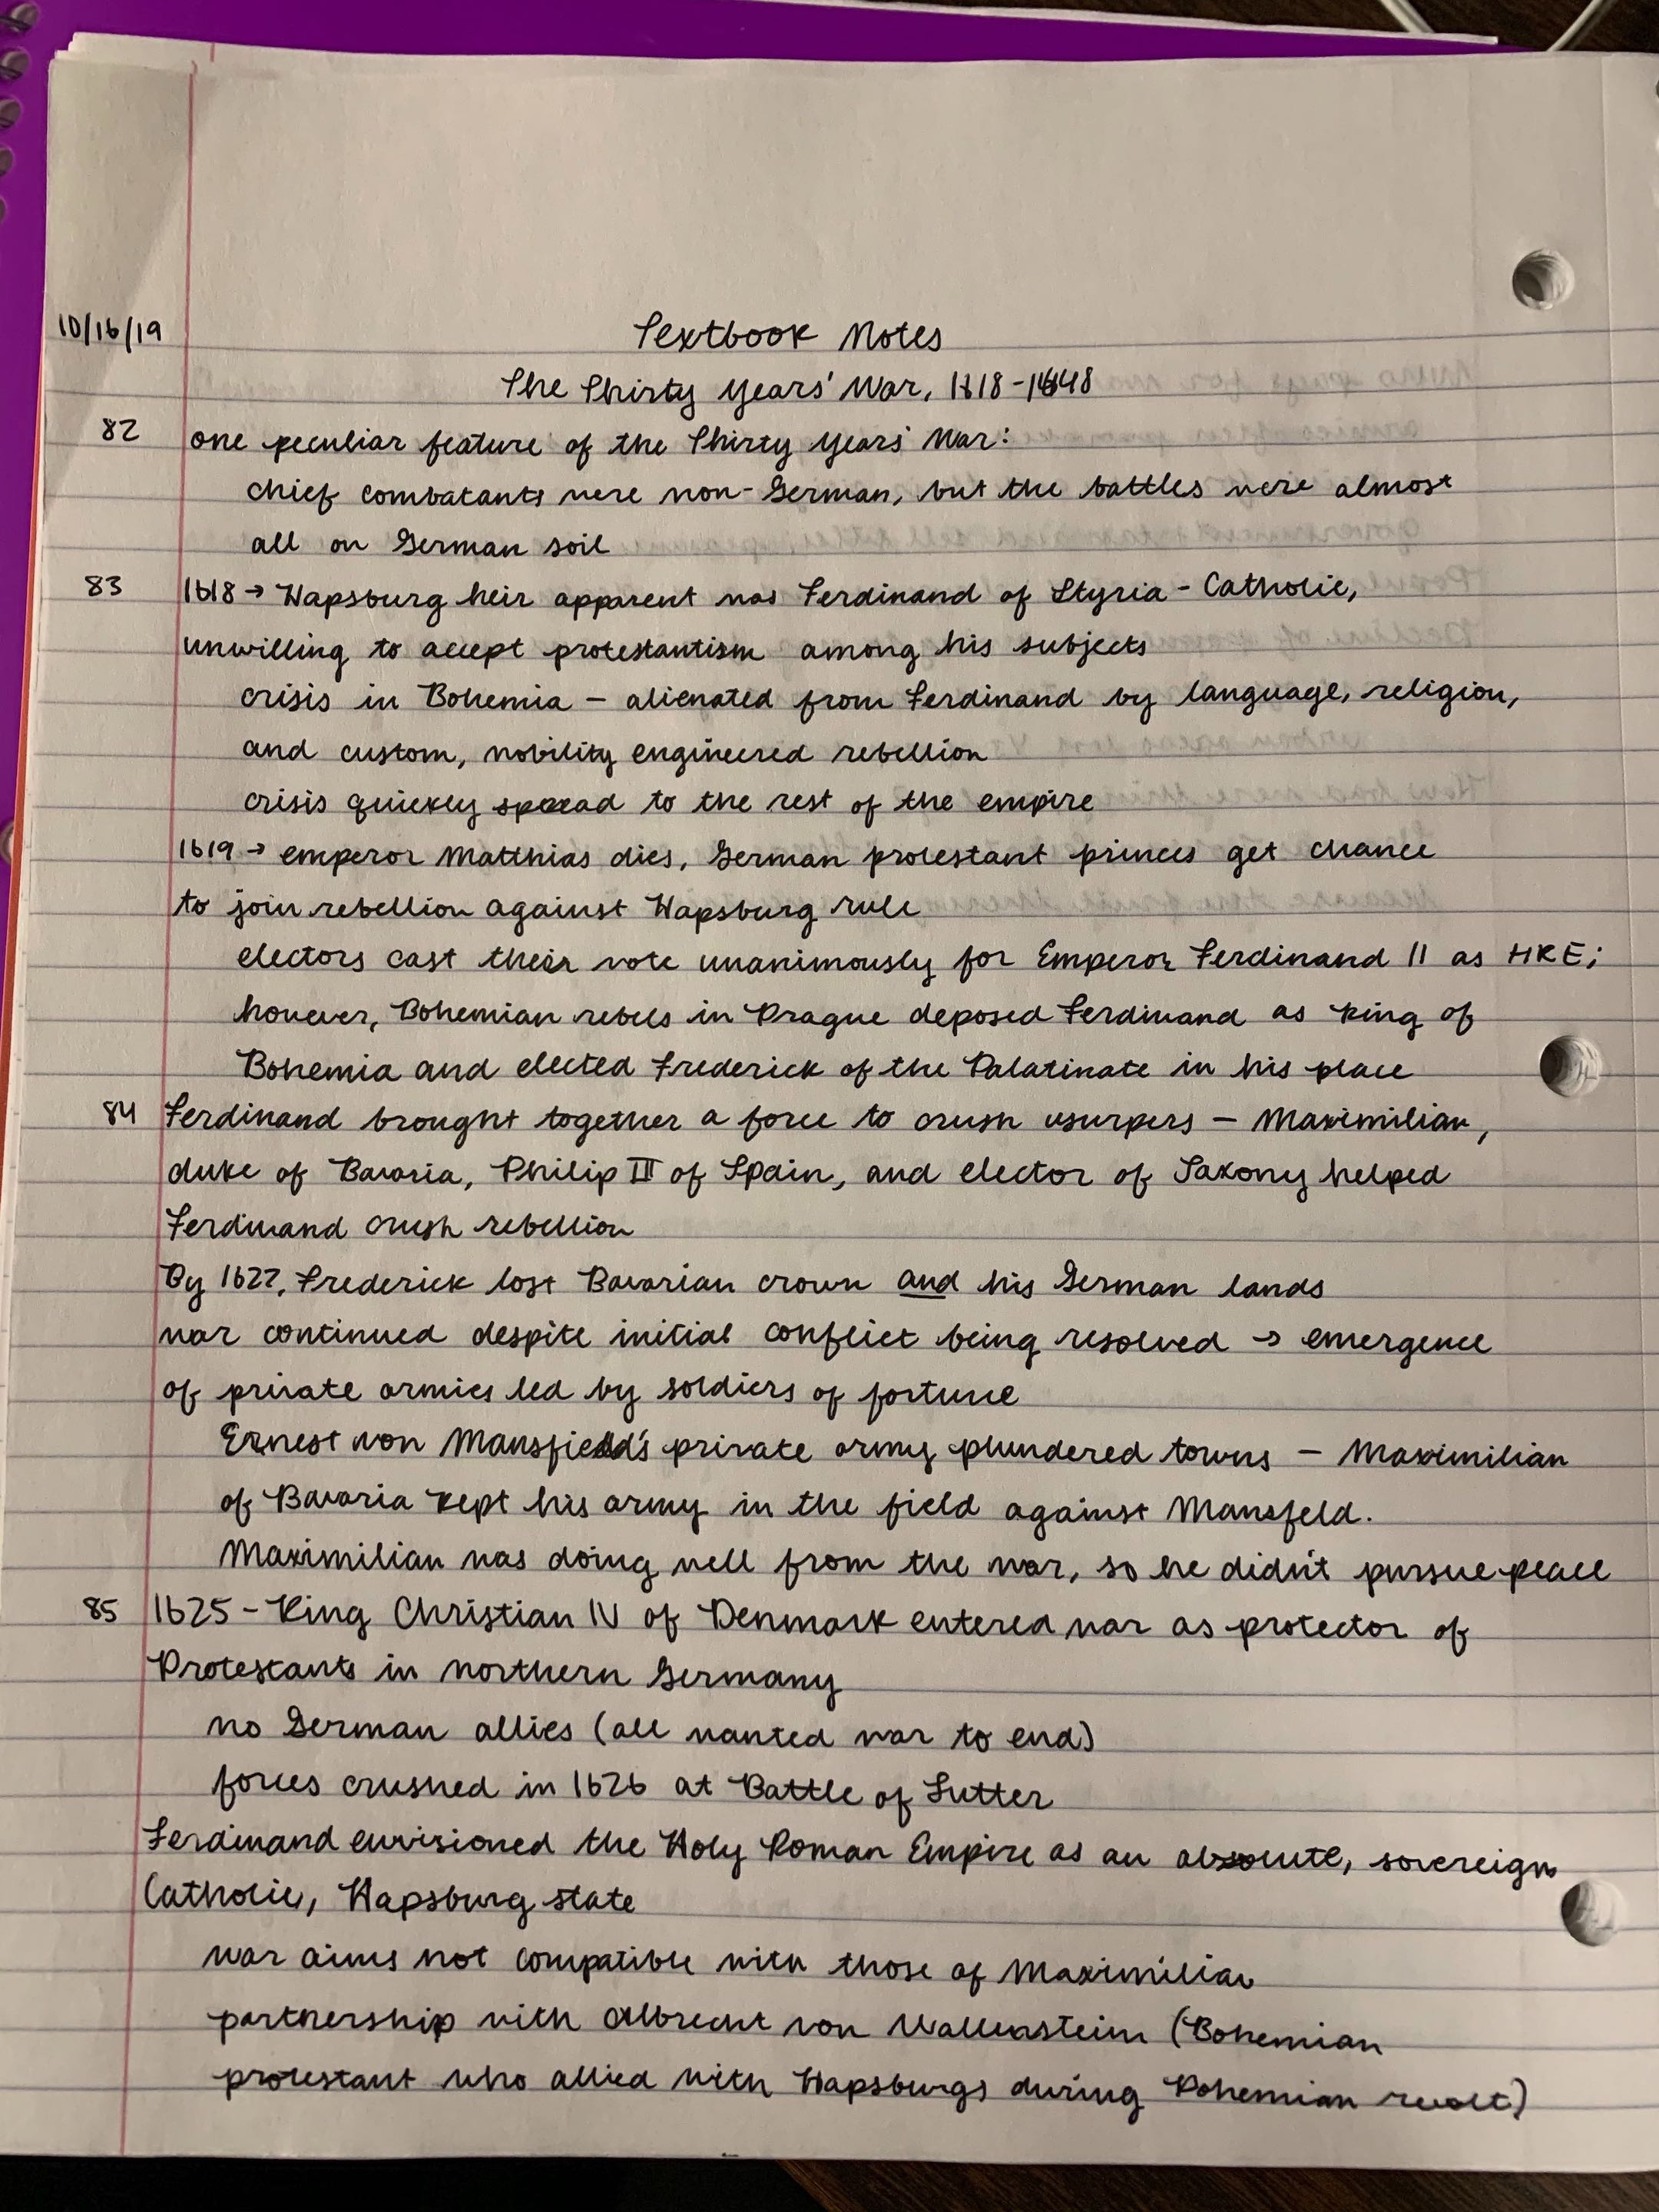 10/16/19
Textbook Notes
The Thirty Years' War, 1618-1648
82 one peculiar feature of the Thirty Years' War:
chief combatants were non-German, but the battles were almost
all on German soil
83 1618 → Hapsburg heir apparent was Ferdinand of Styria - Catholic,
unwilling to accept protestantism among his subjects
crisis in Bohemia - alienated from Ferdinand by language, religion,
and custom, nobility engineered rebellion
crisis quickly spread to the rest of the empire
1619 → emperor Matthias dies, German protestant princes get chance
to join rebellion against Hapsburg rule
electors cast their vote unanimously for Emperor Ferdinand II as HRE;
however, Bohemian rebels in Prague deposed Ferdinand as king of
Bohemia and elected Frederick of the Palatinate in his place
84 Ferdinand brought together a force to crush usurpers - Maximilian,
duke of Bavaria, Philip III of Spain, and elector of Saxony helped
Ferdinand crush rebellion
By 1622, Frederick lost Bavarian crown and his German lands
war continued despite initial conflict being resolved → emergence
of private armies led by soldiers of fortune
Ernest von Mansfield's private army plundered towns - Maximilian
of Bavaria kept his army in the field against Mansfeld.
Maximilian was doing well from the war, so he didn't pursue peace
85 1625 - King Christian IV of Denmark entered war as protector of
Protestants in northern Germany
no German allies (all wanted war to end)
forces crushed in 1626 at Battle of Lutter
Ferdinand envisioned the Holy Roman Empire as an absolute, sovereign
Catholic, Hapsburg state
war aims not compatible with those of Maximilian
partnership with Albrecht von Wallenstein (Bohemian
protestant who allied with Hapsburgs during Bohemian revolt)